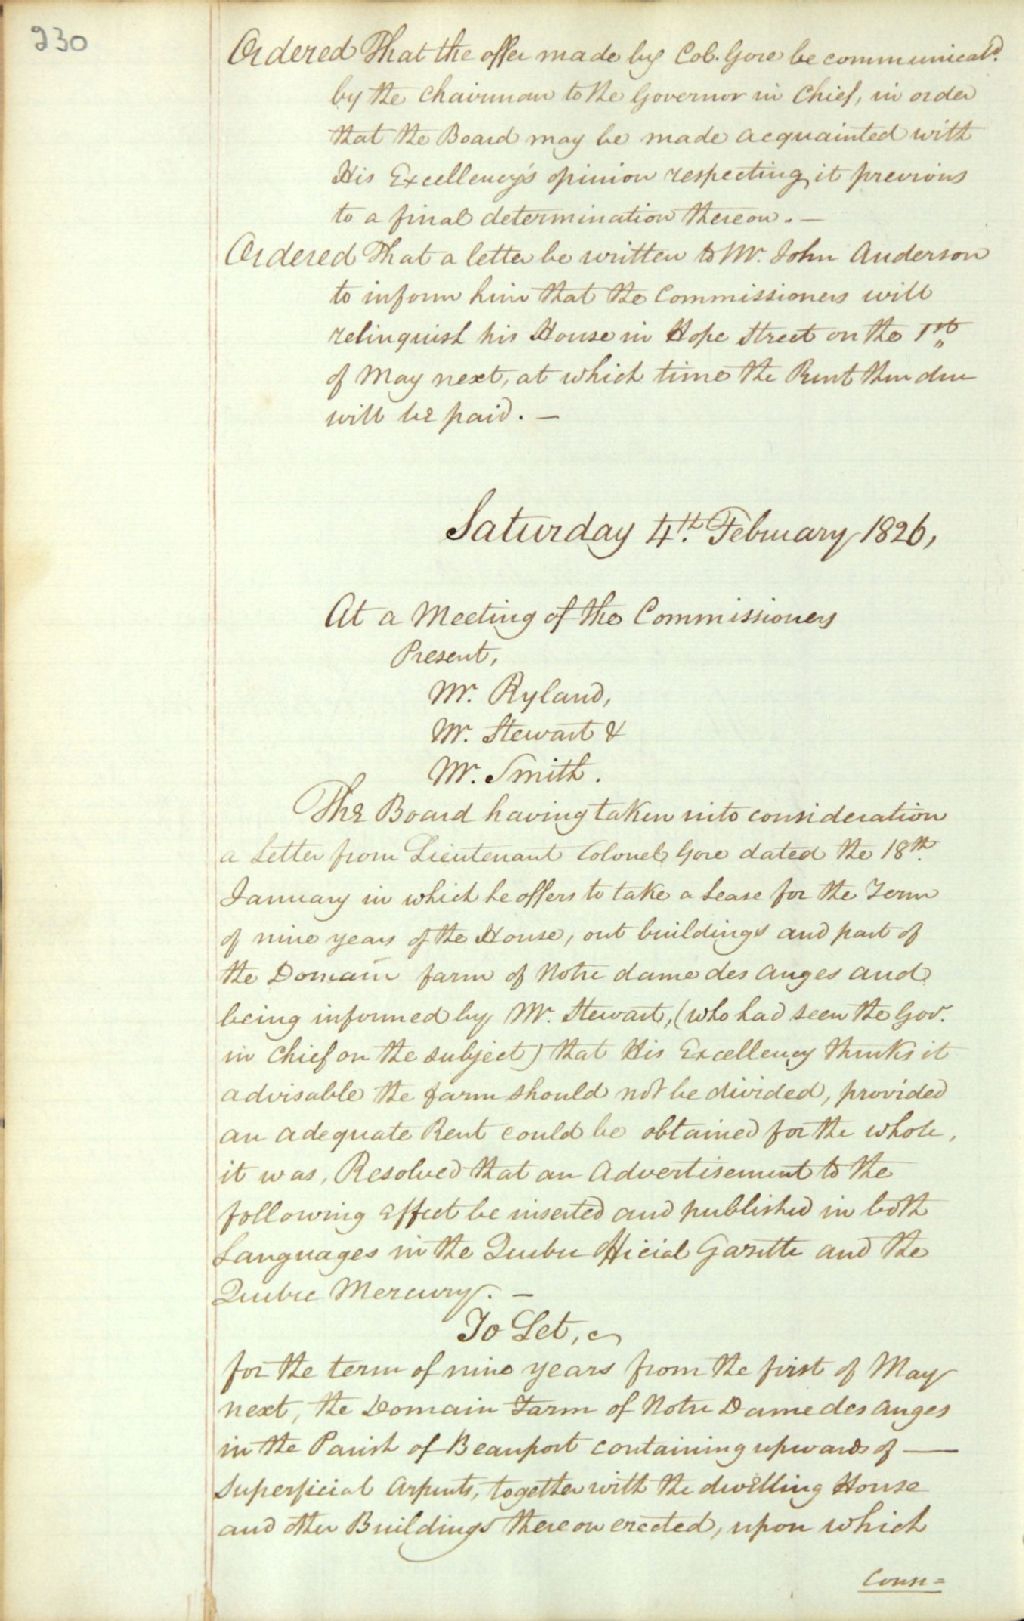 230
Ordered That the offer made by Col. Gore be communicat.d
by the Chairman to the Governor in Chief, in order
that the Board may be made acquainted with
His Excellency's opinion respecting it previous
to a final determination thereon. —
Ordered That a letter be written to Mr. John Anderson
to inform him that the Commissioners will
relinquish his House in Hope Street on the 1st
of May next, at which time the Rent then due
will be paid. —
Saturday 4th. February 1826,
At a Meeting of the Commissioners
Present,
Mr. Ryland,
Mr. Stewart &
Mr. Smith.
The Board having taken into consideration
a Letter from Lieutenant Colonel Gore dated the 18th.
January in which he offers to take a Lease for the Term
of nine years of the House, out buildings and part of
the Domain farm of Notre dame des anges and
being informed by Mr. Stewart, (who had seen the Gov.r
in Chief on the subject) that His Excellency thinks it
advisable the farm should not be divided, provided
an adequate Rent could be obtained for the whole,
it was, Resolved that an Advertisement to the
following effect be inserted and published in both
Languages in the Quebec Official Gazette and the
Quebec Mercury. —
To Let,
for the term of nine years from the first of May
next, the Domain Farm of Notre Dame des anges
in the Parish of Beauport containing upwards of —
Superficial Arpents, together with the dwelling House
and other Buildings thereon erected, upon which
Consi=